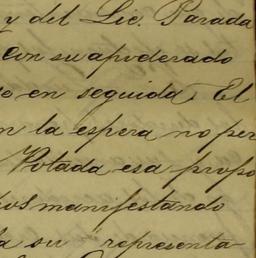 y del Lic. Parada
con su apoderado
en seguida. El
la espera no per
Votada esa propo
manifestando
su representa-